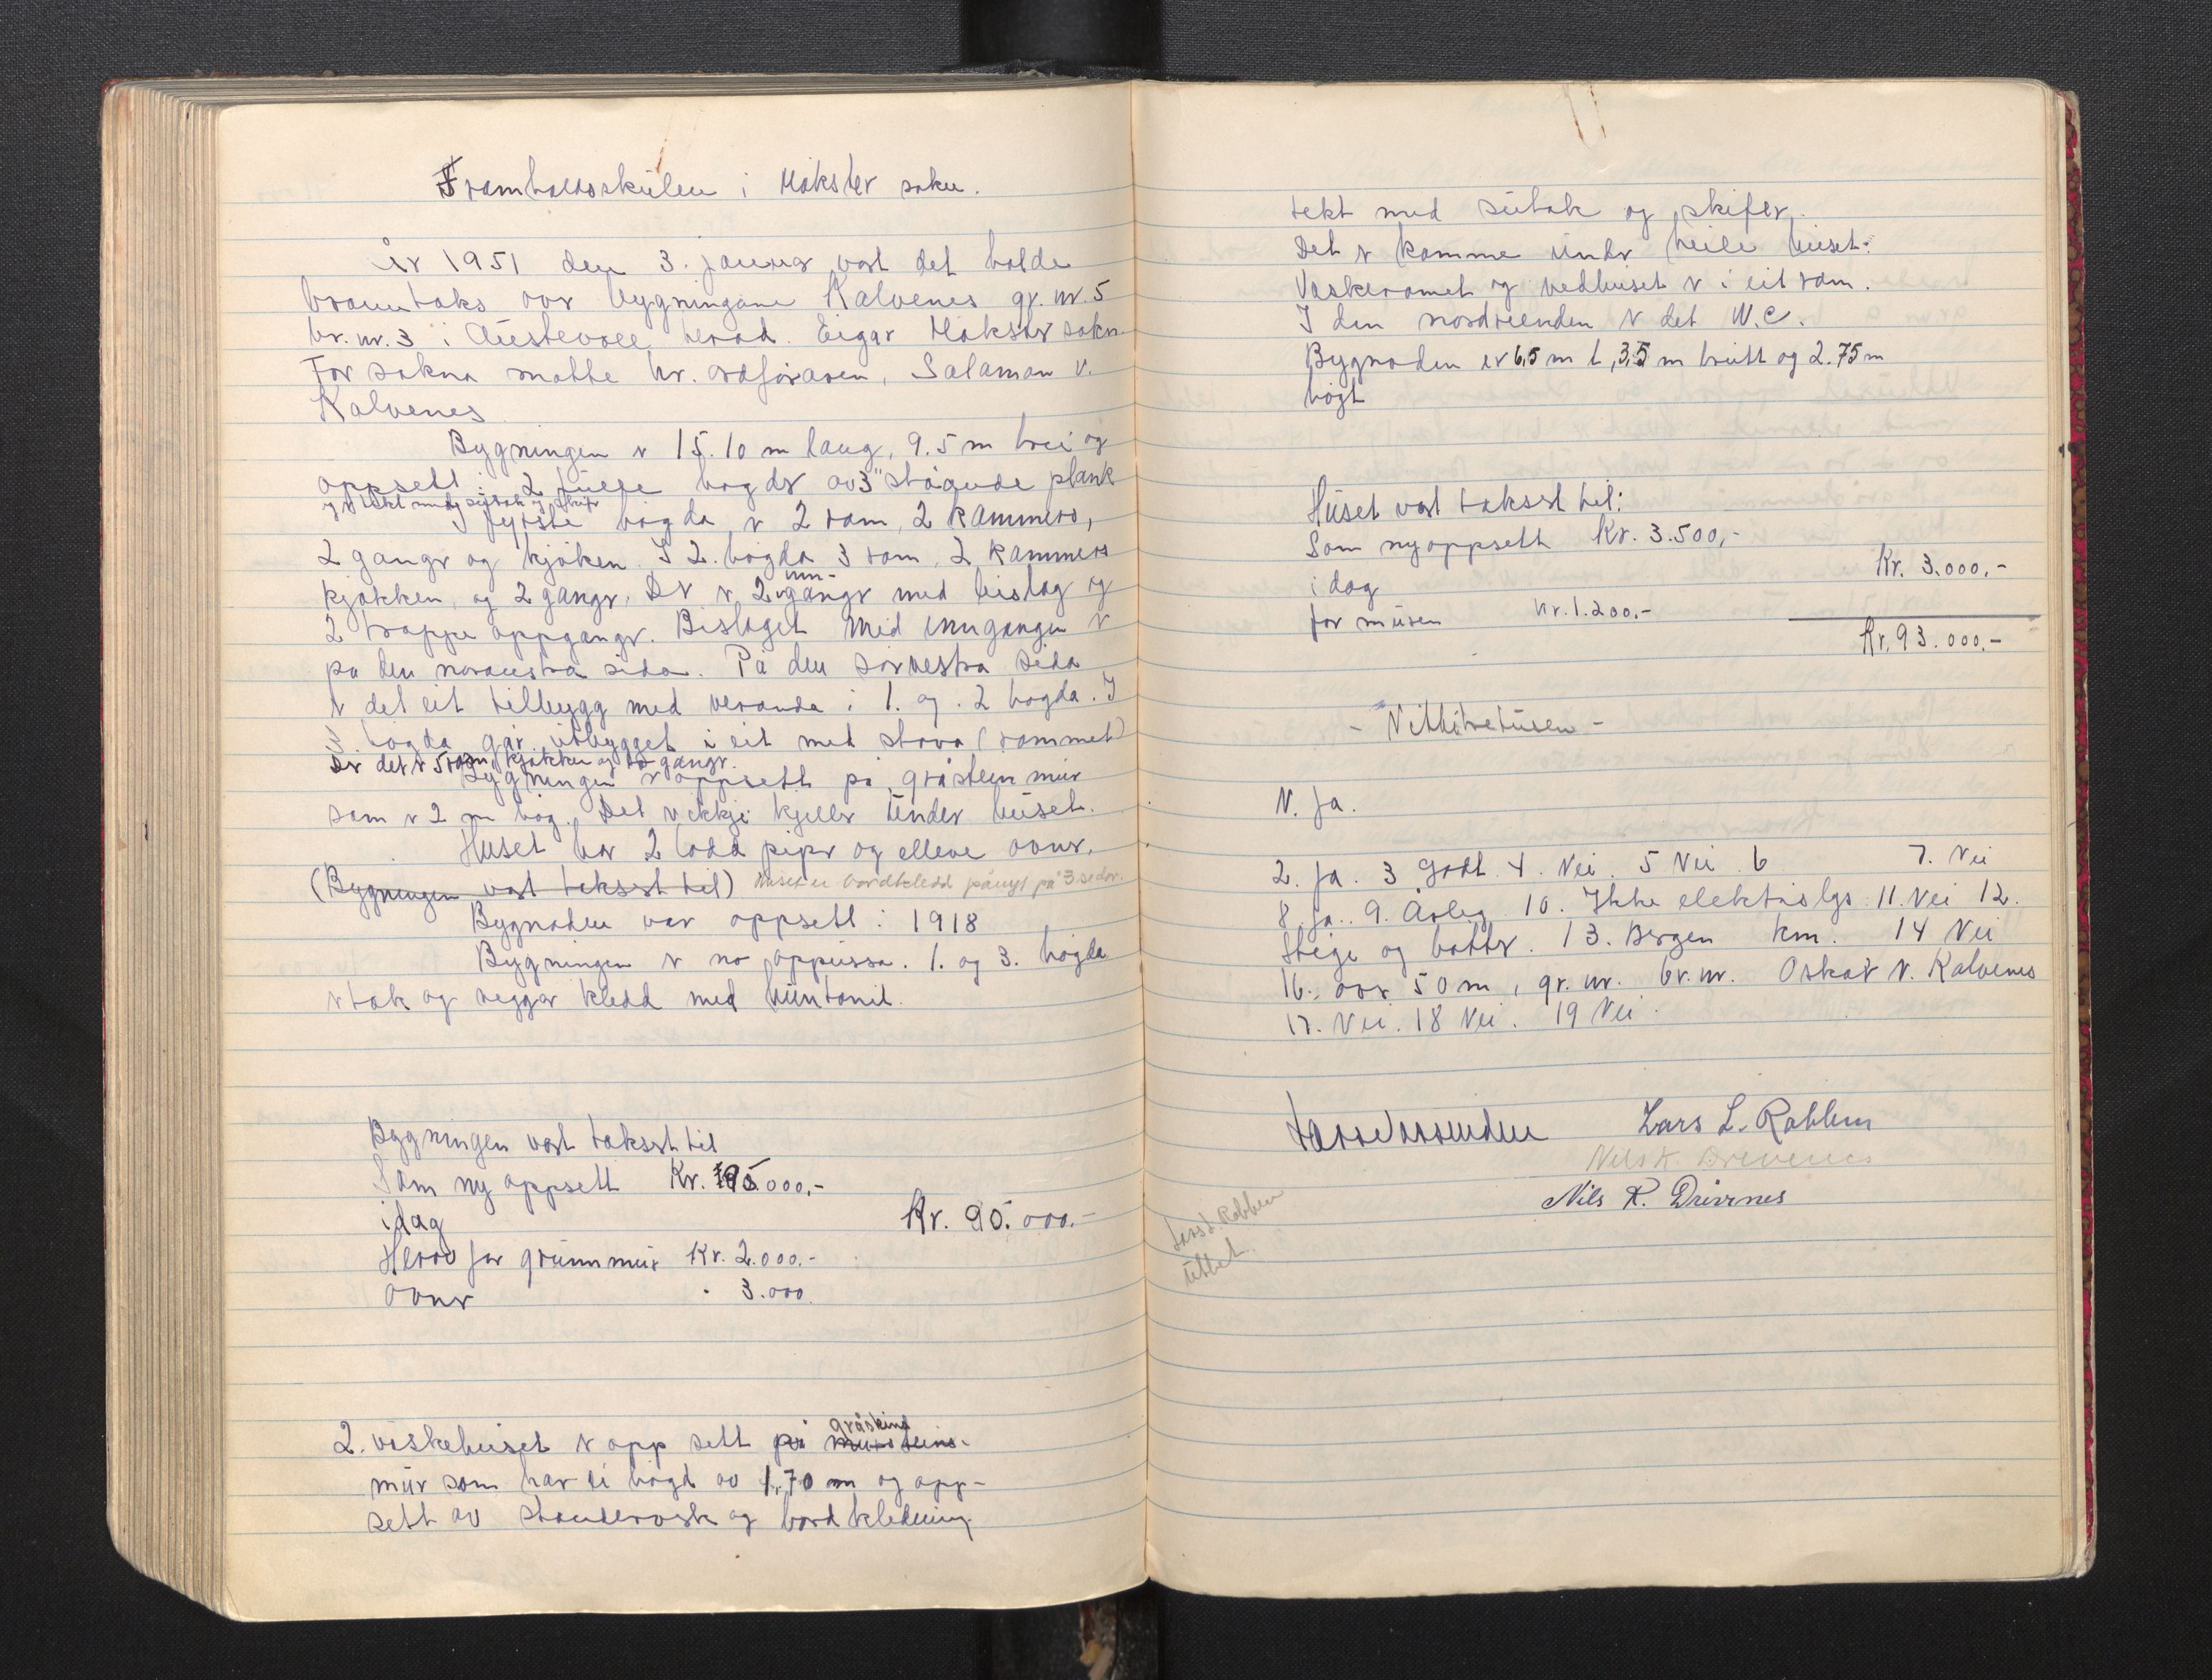 Framhaldsskulen i Møkster sokn.
År 1951 den 3. januar vart det halde
branntakst over bygningane Kalvenes gr. nr. 5
br. nr. 3 i Austevoll herad. Eigar Møkster sokn
For sokna møtte hr. ordføraren, Salamon V.
Kalvenes
Bygningen er 15.10 m lang, 9.5 m brei og
oppsett i 2 fulle høgder av 3" ståande plank
og er tekt med sutak og skifer
fyrste høgda er 2 rom, 2 kammers,
2 ganger og kjøken. I 2. høgda 3 rom, 2 kammers
kjøkken, og 2 ganger. Der er 2 inn-
ganger med bislag og
2 trappe oppganger. Bislaget med inngangen er
på den noraustra sida. På den sørvestra sida
er det eit tilbygg med veranda i 1. og. 2 høgda. I
3. høgda går utbygget i eit med stova (rommet)
Der det er 5 rom, kjøkken og to ganger.
Bygningen er oppsett på gråstein mur
som er 2 m høg. Det er ikkje kjeller under huset.
Huset har 2 lodd piper og elleve ovner.
(Bygningen vart taksert til) Huset er bordkledd pånyt på 3 sedor.
Bygnaden var oppsett i 1918
Bygningen er no oppussa. 1. og 3. høgda
er tak og veggar kledd med huntonit.
Bygningen vart taksert til
Som ny oppsett Kr. 195.000,-
idag Kr. 90.000.-
Herav for grunnmur Kr. 2.000.-
ovner " 3.000.
2. vaskehuset er opp sett på mursteins- gråsteins
mur som har ei høgd av 1,70 m og opp-
sett av stenderverk og bordkledning
tekt med sutak og skifer.
Det er komme under heile huset.
Vaskeromet og vedhuset er i eit rom.
I den nordreenden er det W.C.
Bygnaden er 6,5 m l, 3,5 m breitt og 2.75 m
høgt
Huset vart taksert til:
Som nyoppsett Kr. 3.500,-
idag Kr. 3.000.-
for muren Kr. 1.200.-
Kr. 93.000,-
N. Ja.
2. Ja. 3 Godt. 4. Nei. 5 Nei. 6 7. Nei
8. Ja. 9. Årleg 10. Ikke elektrislys. 11. Nei 12.
Stige og bøtter. 13. Bergen km. 14 Nei
16. over 50 m, gr. nr. br. nr. Oskar N. Kalvenes
17. Nei. 18 Nei. 19 Nei.
Lars L. Rabben
Nils K. Drivenes
Nils K. Drivenes
Lars L. Rabben